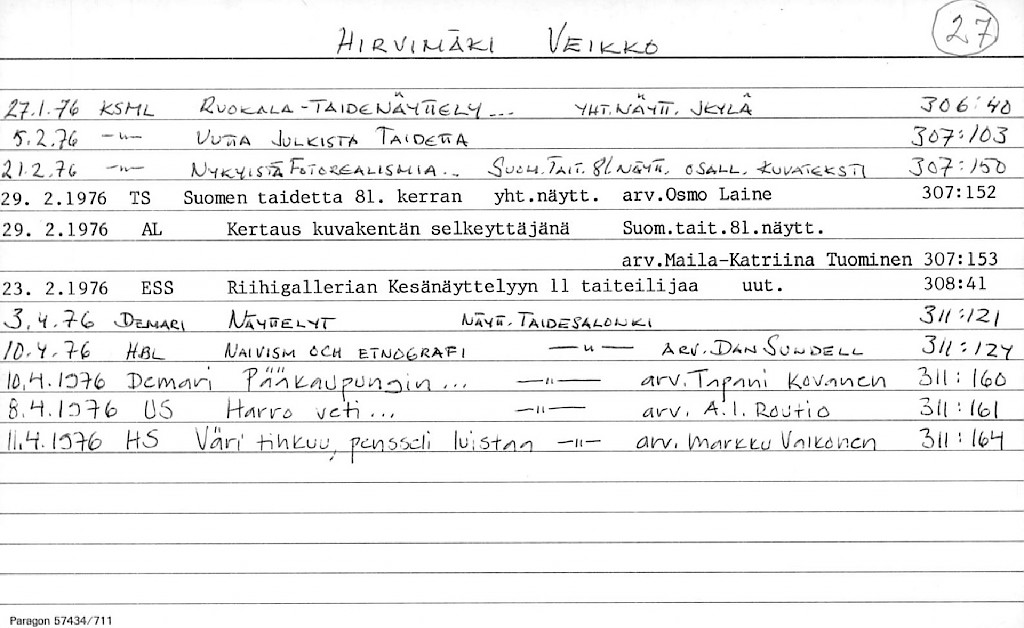 HIRVIMÄKI VEIKKO 27
27.1.76 KSML RUOKALA-TAIDENÄYTTELY... YHT.NÄYTT. JKYLÄ 306:40
5.2.76 -"- UUTTA JULKISTA TAIDETTA 307:103
21.2.76 -"- NYKYISTÄ FOTOREALISMIA... SUOM.TAIT. 81.NÄYTT. OSALL. KUVATEKSTI 307:150
29. 2.1976 TS Suomen taidetta 81. kerran yht.näytt. arv.Osmo Laine 307:152
29. 2.1976 AL Kertaus kuvakentän selkeyttäjänä Suom.tait.81.näytt.
arv.Maila-Katriina Tuominen 307:153
23. 2.1976 ESS Riihigallerian Kesänäyttelyyn 11 taiteilijaa uut. 308:41
3.4.76 DEMARI NÄYTTELYT NÄYTT. TAIDESALONKI 311:121
10.4.76 HBL NAIVISM OCH ETNOGRAFI -"- ARV. DAN SUNDELL 311:124
10.4.1976 Demari Pääkaupungin... -"- arv. Tapani Kovanen 311:160
8.4.1976 US Harro veti... -"- arv. A.I. Routio 311:161
11.4.1976 HS Väri tihkuu, pensseli luistaa -"- arv. Markku Valkonen 311:164
Paragon 57434/711